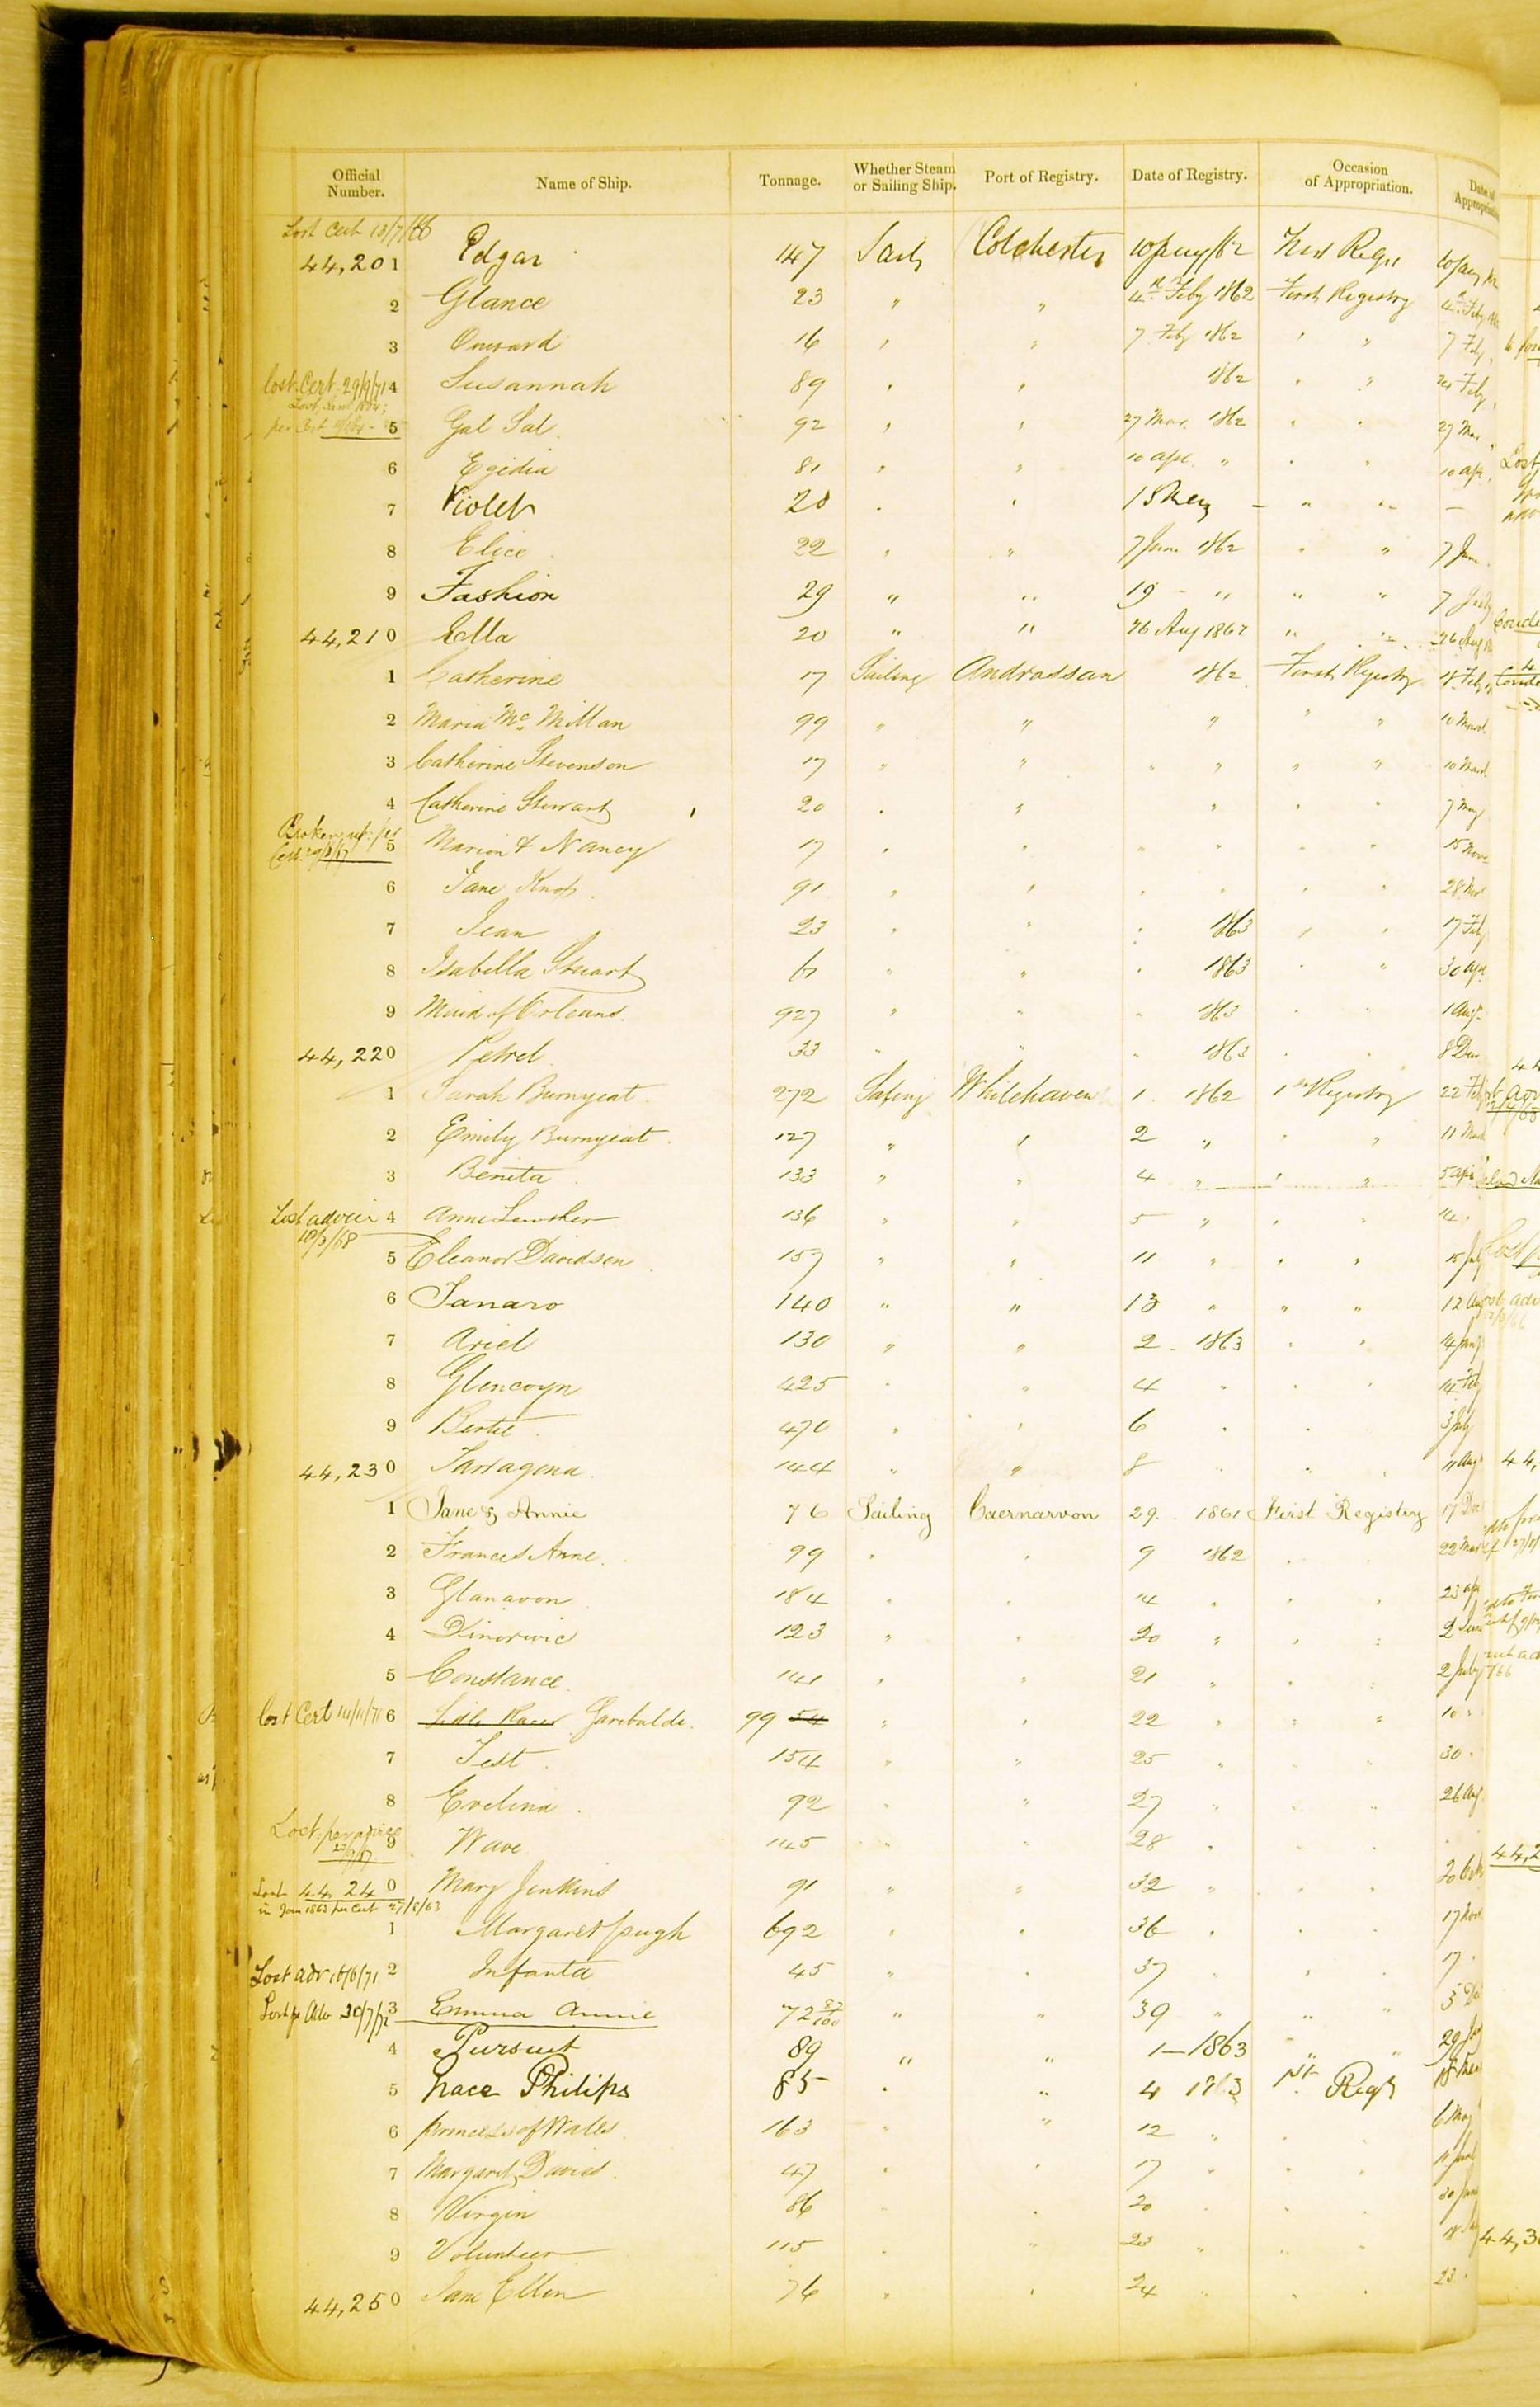 Official Number. Name of Ship. Tonnage. Whether Steam or Sailing Ship. Port of Registry. Date of Registry. Occasion of Appropriation. Date of
Lost Cert 13/7/66
44,201 Edgar 147 Sails Colchester
2 Glance 23 " " 4th Feby 1862 First Registry
3 Onward 16 " " 7 Feby 1862 " " 7 Feby
Lost Cert. 29/9/71 4 Susannah 89 " " 1862 " " Feby
5 Gal Sal 92 " " 27 Mar. 1862 " " 27 Mar
6 Egidia 81 " " 10 Apl. " " " 10 Ap.
7 Violet 20 " " " "
8 Elice 22 " " 7 June 1862 " " 7 June
9 Fashion 29 " " 19 - " " " 7 July
44,210 Ella 20 " " 26 Aug 1862 " " 26 Aug
1 Catherine 17 Sailing Androssan 1862 First Registry 18 Feby
2 Maria Mc Millan 99 " " " " " 10 March
3 Catherine Stevenson 17 " " " " " " 10 March
4 Catherine Stewart 20 " " " " " 7 May
Broken up per
Cert. 5 Marion & Nancy 17 " " " " " " 15 Nov
6 Jane Knox 91 " " " " " " 28 Nov
7 Jean 23 " " " 1863 " " 17 Feb
8 Isabella Stuart " " " 1863 " " 30 Apl
9 Maid of Orleans 927 " " " 1863 " " 1 Aug
44,220 Petrel 33 " " " 1863 " " 8 Dec
1 Sarah Burnyeat 272 Sailing Whitehaven 1. 1862 1st Registry 22 Feb
2 Emily Burnyeat 127 " " 2 " " " 11 March
3 Benita 133 " " 4 " " " 5 Apl
Lost advice 4 Anne 136 " " 5 " " " 14
10/3/68
5 Eleanor Davidson 157 " " 11 " " " 15 July
6 Tanaro 140 " " 13 " " " 12 Aug
7 Ariel 130 " " 2 - 1863 " " 14 Jany
8 Glencoyn 425 " " 4 " " " 14 Feb
9 Bertie 470 " " 6 " " 3 July
44,230 Tarragona 144 " " 8 " " " 11 Aug
1 Jane & Annie 76 Sailing Caernarvon 29. 1861 First Registry 17 Dec
2 Frances Anne. 99 " " 9 1862 " " 22 Mar
3 Glanavon 184 " " 14 " " " 23 Ap
4 Dinorwic 123 " " 20 " " " 2 June
5 Constance 141 " " 21 " " " 2 July
Lost Cert 14/11/71 6 Garibaldi. 99 54 " " 22 " " " 10 "
7 Test 154 " " 25 " " " 30 "
8 Evelina 92 " " 27 " " " 26 Aug
Lost per advice
9 Wave 145 " " 28 " " "
Lost 44,240 Mary Jenkins 91 " " 32 " " "
in Jany 1863 per Cert 27/5/63
1 Margaret Pugh 692 " " 36 " " " 17 Nov
Lost adv 16/6/71 2 Infanta 45 " " 37 " " " 17 "
3 Emma Annie 72 87/100 " " 39 " " " 3 De
4 Pursuit 89 " " 1 - 1863 " "
5 Grace Philips 85 " " 4 1863 1st Regy
6 Princess of Wales 163 " " 12 " " " 6 May
7 Margaret Davies 47 " " 17 " " " June
8 Virgin 86 " " 20 " " " 30 June
9 Volunteer 115 " " 23 " " "
44,250 Jane Ellen 76 " " 24 " " " 23 "